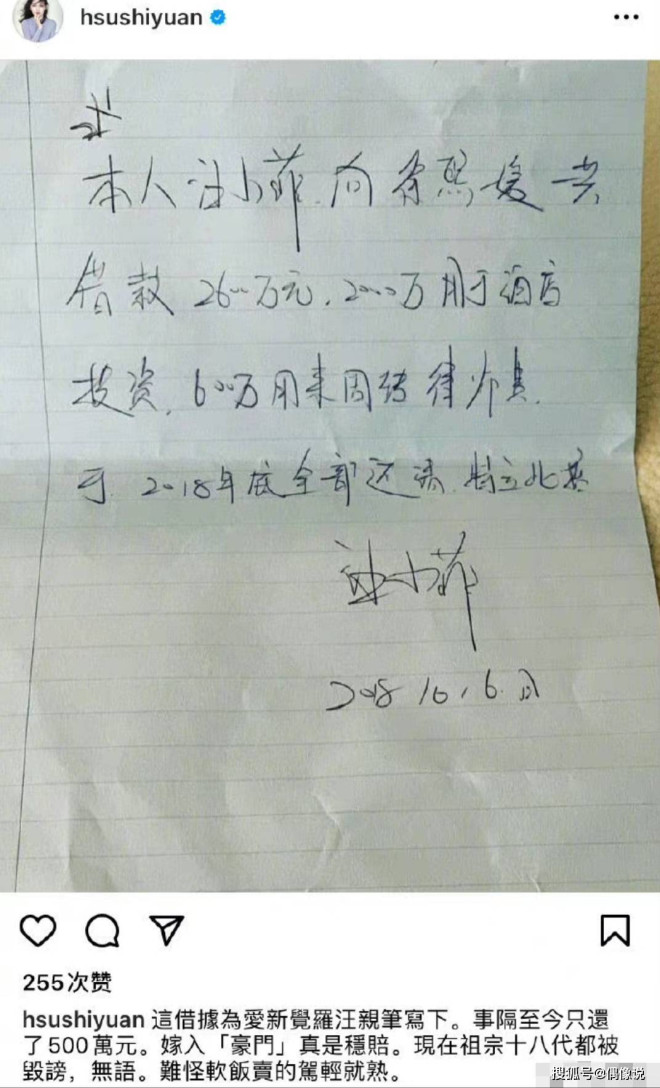 hsushiyuan
本人汪小菲.向徐熙媛共
借款2600万元.2000万用于酒店
投资,600万用来周转律师费.
于2018年底全部还清.特立此据
汪小菲
255次赞
hsushiyuan 這借據為愛新覺羅汪親筆寫下。事隔至今只還
了500萬元。嫁入「豪門」真是穩賠。現在祖宗十八代都被
毀謗，無語。難怪軟飯賣的駕輕就熟。
搜狐号@偶像说